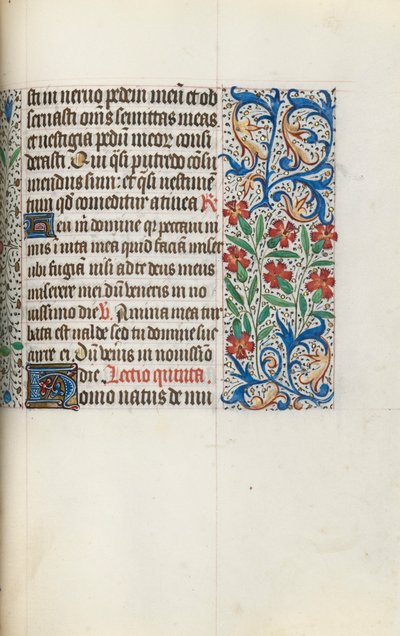 sti in neruo pedem meū et ob
seruasti om̄s semittas meas
et vestigia pedū meoꝝ consi
derasti Qui q̄si putredo cōsu
mendus sum: et q̄si vestime
tum qd̄ comeditur a tinea R̸
Heu m̄ domine q̄ peccaui ni
mis ī uita mea quid faciā miser
ubi fugiā nisi ad te deus meus
miserere mei dū veneris in no
uissimo die V̸ Anima mea tur
bata est ualde sed tu domine suc
curre ei. Dū venis in nouissīo
die. Lectio quinta.
Homo natus de mu